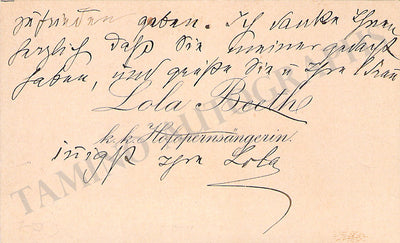 zufrieden geben. Ich danke Ihnen
herzlich daß Sie meiner gedacht
haben, und grüße Sie u Ihre Frau
Lola Beeth
k. k. Hofopernsängerin.
innigst Ihre Lola
TAMINO AUTOGRAPHS